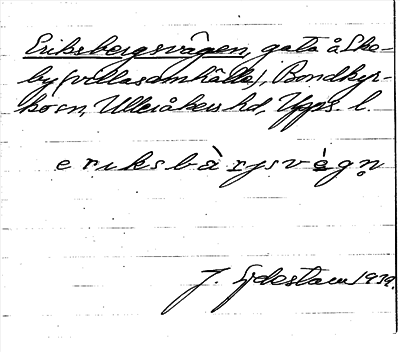 Eriksbergsvägen, gata å Eke-
by (villasamhälle), Bondkyr-
ko sn, Ulleråkers hd, Upps. l.
eriksbàrjsvè̀gn̥
J. Lydestam 1939.